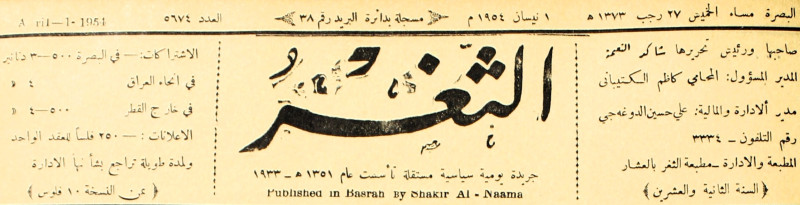 البصرة مساء الخميس ٢٧ رجب ١٣٧٣ ھ ١ نيسان ١٩٥٤ م مسجلة بدائرة البريد رقم ٣٨ العدد ٥٦٧٤ April-1-1954
صاحبها ورئيس تحريرها شاكر النعمة
المدير المسؤول: المحامي كاظم الكتيباني
مدير الادارة والمالية: علي حسين الدوغه جي
رقم التلفون - ٣٣٣٤
المطبعة والادارة - مطبعة الثغر بالعشار
﴿ السنة الثانية والعشرين ﴾
الثغر
جريدة يومية سياسية مستقلة تأسست عام ١٣٥١ ھ - ١٩٣٣
Published in Basrah By Shakir Al - Naama
الاشتراكات :- في البصرة ٥٠٠-٣ دنانير
في انحاء العراق ٤ »
في خارج القطر ٥٠٠-٤ »
الاعلانات :- ٢٥٠ فلساً للعقد الواحد
ولمدة طويلة تراجع بشأنها الادارة
﴿ ثمن النسخة ١٠ فلوس ﴾